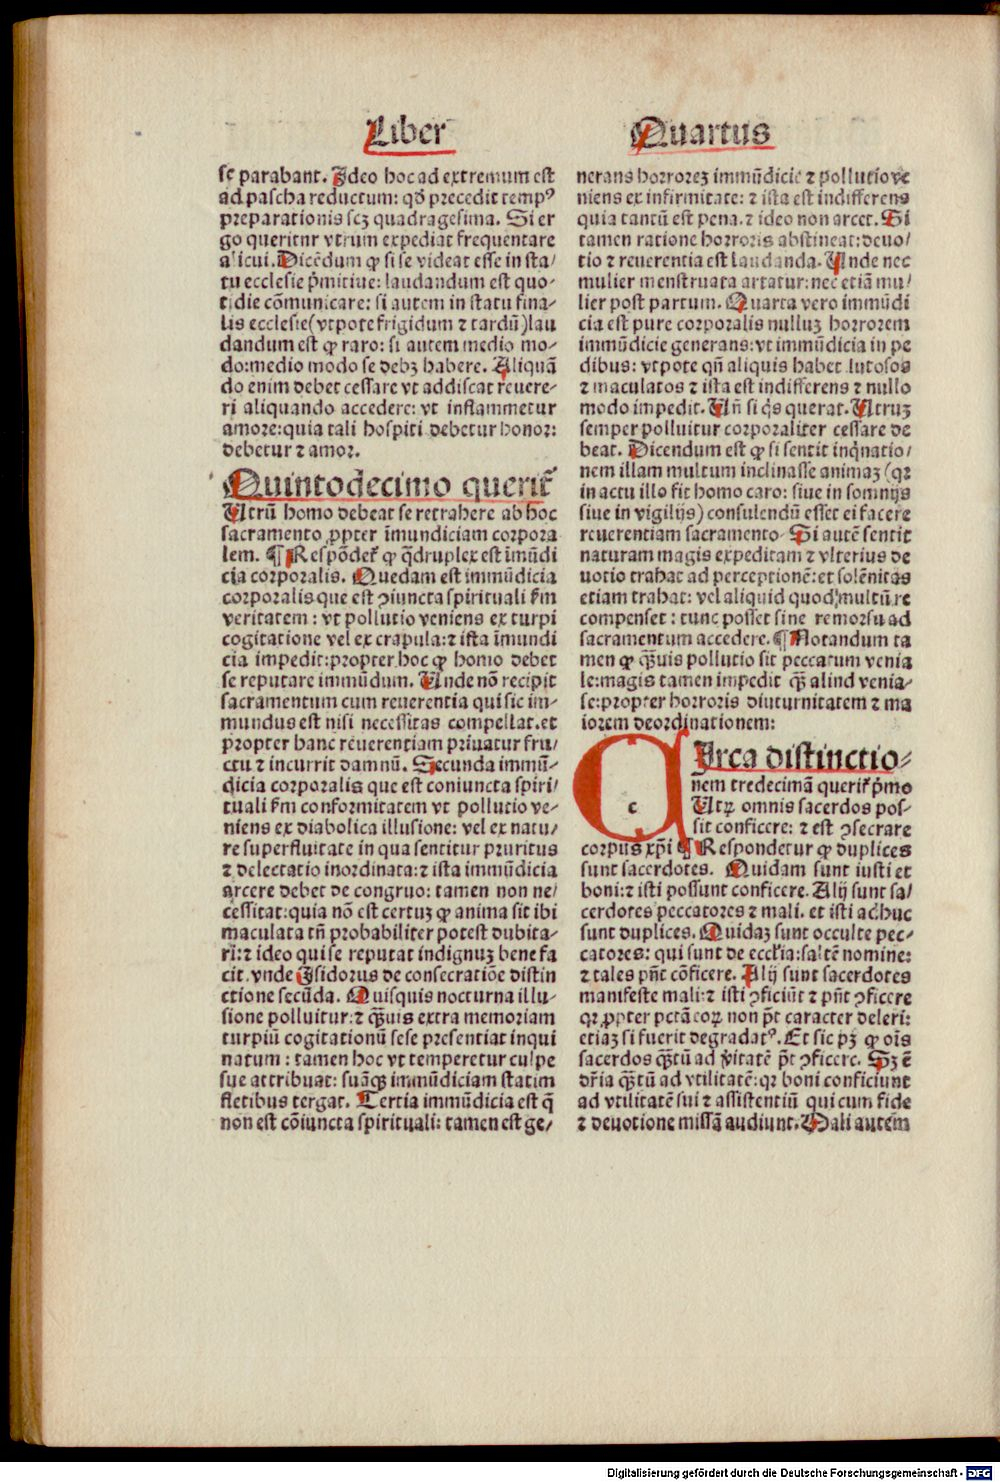 Liber Quartus
se parabant. Ideo hoc ad extremum est
ad pascha reductum: qd̄ precedit tempꝰ
preparationis scꝫ quadragesima. Si er
go queritur vtrum expediat frequentare
alicui. Dicēdum ꝙ si se videat esse in sta/
tu ecclesie p̄mitiue: laudandum est quo-
tidie cōmunicare: si autem in statu fina-
lis ecclesie (vtpote frigidum ⁊ tardū) lau
dandum est ꝙ raro: si autem medio mo-
do: medio modo se debꝫ habere. Aliquā
do enim debet cessare vt addiscat reuere-
ri aliquando accedere: vt inflammetur
amore: quia tali hospiti debetur honor:
debetur ⁊ amor.
Quintodecimo querit᷑
Utrū homo debeat se retrahere ab hoc
sacramento ꝓpter īmundiciam corpora
lem. ¶ Respōdet᷑ ꝙ q̄druplex est īmūdi
cia corporalis. Quedam est immūdicia
corporalis que est ꝯiuncta spirituali ẜm
veritatem: vt pollutio veniens ex turpi
cogitatione vel ex crapula: ⁊ ista īmundi
cia impedit: propter hoc ꝙ homo debet
se reputare immūdum. Unde nō recipit
sacramentum cum reuerentia qui sic im-
mundus est nisi necessitas compellat. et
propter hanc reuerentiam priuatur fru/
ctu ⁊ incurrit damnū. Secunda immū-
dicia corporalis que est coniuncta spiri/
tuali ẜm conformitatem vt pollutio ve-
niens ex diabolica illusione: vel ex natu/
re superfluitate in qua sentitur pruritus
⁊ delectatio inordinata: ⁊ ista immūdicia
arcere debet de congruo: tamen non ne/
cessitat: quia nō est certuꝫ ꝙ anima sit ibi
maculata tn̄ probabiliter potest dubita-
ri: ⁊ ideo qui se reputat indignuꝫ bene fa
cit. vnde Isidorus de consecratiōe distin
ctione secūda. Quisquis nocturna illu-
sione polluitur: ⁊ qꝫ̄uis extra memoriam
turpiū cogitationū sese presentiat inqui
natum: tamen hoc vt temperetur culpe
sue attribuat: suāqꝫ immūdiciam statim
fletibus tergat. Tertia immūdicia est q̄
non est cōiuncta spirituali: tamen est ge/
nerans horroreꝫ immūdicie ⁊ pollutio ve
niens ex infirmitate: ⁊ ista est indifferens
quia tantū est pena. ⁊ ideo non arcet. Si
tamen ratione horroris abstineat: deuo/
tio ⁊ reuerentia est laudanda. Unde nec
mulier menstruata artatur: nec etiā mu/
lier post partum. Quarta vero immūdi
cia est pure corporalis nulluꝫ horrorem
immūdicie generans: vt immūdicia in pe
dibus: vtpote qn̄ aliquis habet lutosos
⁊ maculatos ⁊ ista est indifferens ⁊ nullo
modo impedit. Un̄ si q̇s querat. Utruꝫ
semper polluitur corporaliter cessare de
beat. Dicendum est ꝙ si sentit inq̇natio-
nem illam multum inclinasse animaꝫ (qꝛ
in actu illo fit homo caro: siue in somnijs
siue in vigilijs) consulendū esset ei facere
reuerentiam sacramento. Si autē sentit
naturam magis expeditam ⁊ vlterius de
uotio trahat ad perceptionē: et solēnitas
etiam trahat: vel aliquid quod multū re
compenset: tunc posset sine remorsu ad
sacramentum accedere. ¶ Notandum ta
men ꝙ qꝫ̄uis pollutio sit peccatum venia
le: magis tamen impedit qꝫ̄ aliud venia-
le: propter horroris diuturnitatem ⁊ ma
iorem deordinationem:
Circa distinctio-
nem tredecimā querit᷑ p̄mo
Utꝝ omnis sacerdos pos-
sit conficere: ⁊ est ꝯsecrare
corpus xp̄i ¶ Respondetur ꝙ duplices
sunt sacerdotes. Quidam sunt iusti et
boni: ⁊ isti possunt conficere. Alij sunt sa/
cerdotes peccatores ⁊ mali. et isti adhuc
sunt duplices. Quidaꝫ sunt occulte pec-
catores: qui sunt de eccl̄ia: saltē nomine:
⁊ tales pn̄t cōficere. Alij sunt sacerdotes
manifeste mali: ⁊ isti ꝯficiūt ⁊ pn̄t ꝯficere
qꝛ ꝓpter pctā coꝝ non p̄t caracter deleri:
etiaꝫ si fuerit degradatꝰ. Et sic pꝫ ꝙ oīs
sacerdos qꝫ̄tū ad v̄itatē p̄t ꝯficere. Sꝫ ē
dr̄ia qꝫ̄tū ad vtilitatē: qꝛ boni conficiunt
ad vtilitatē sui ⁊ assistentiū qui cum fide
⁊ deuotione missā audiunt. Mali autem
Digitalisierung gefördert durch die Deutsche Forschungsgemeinschaft - DFG